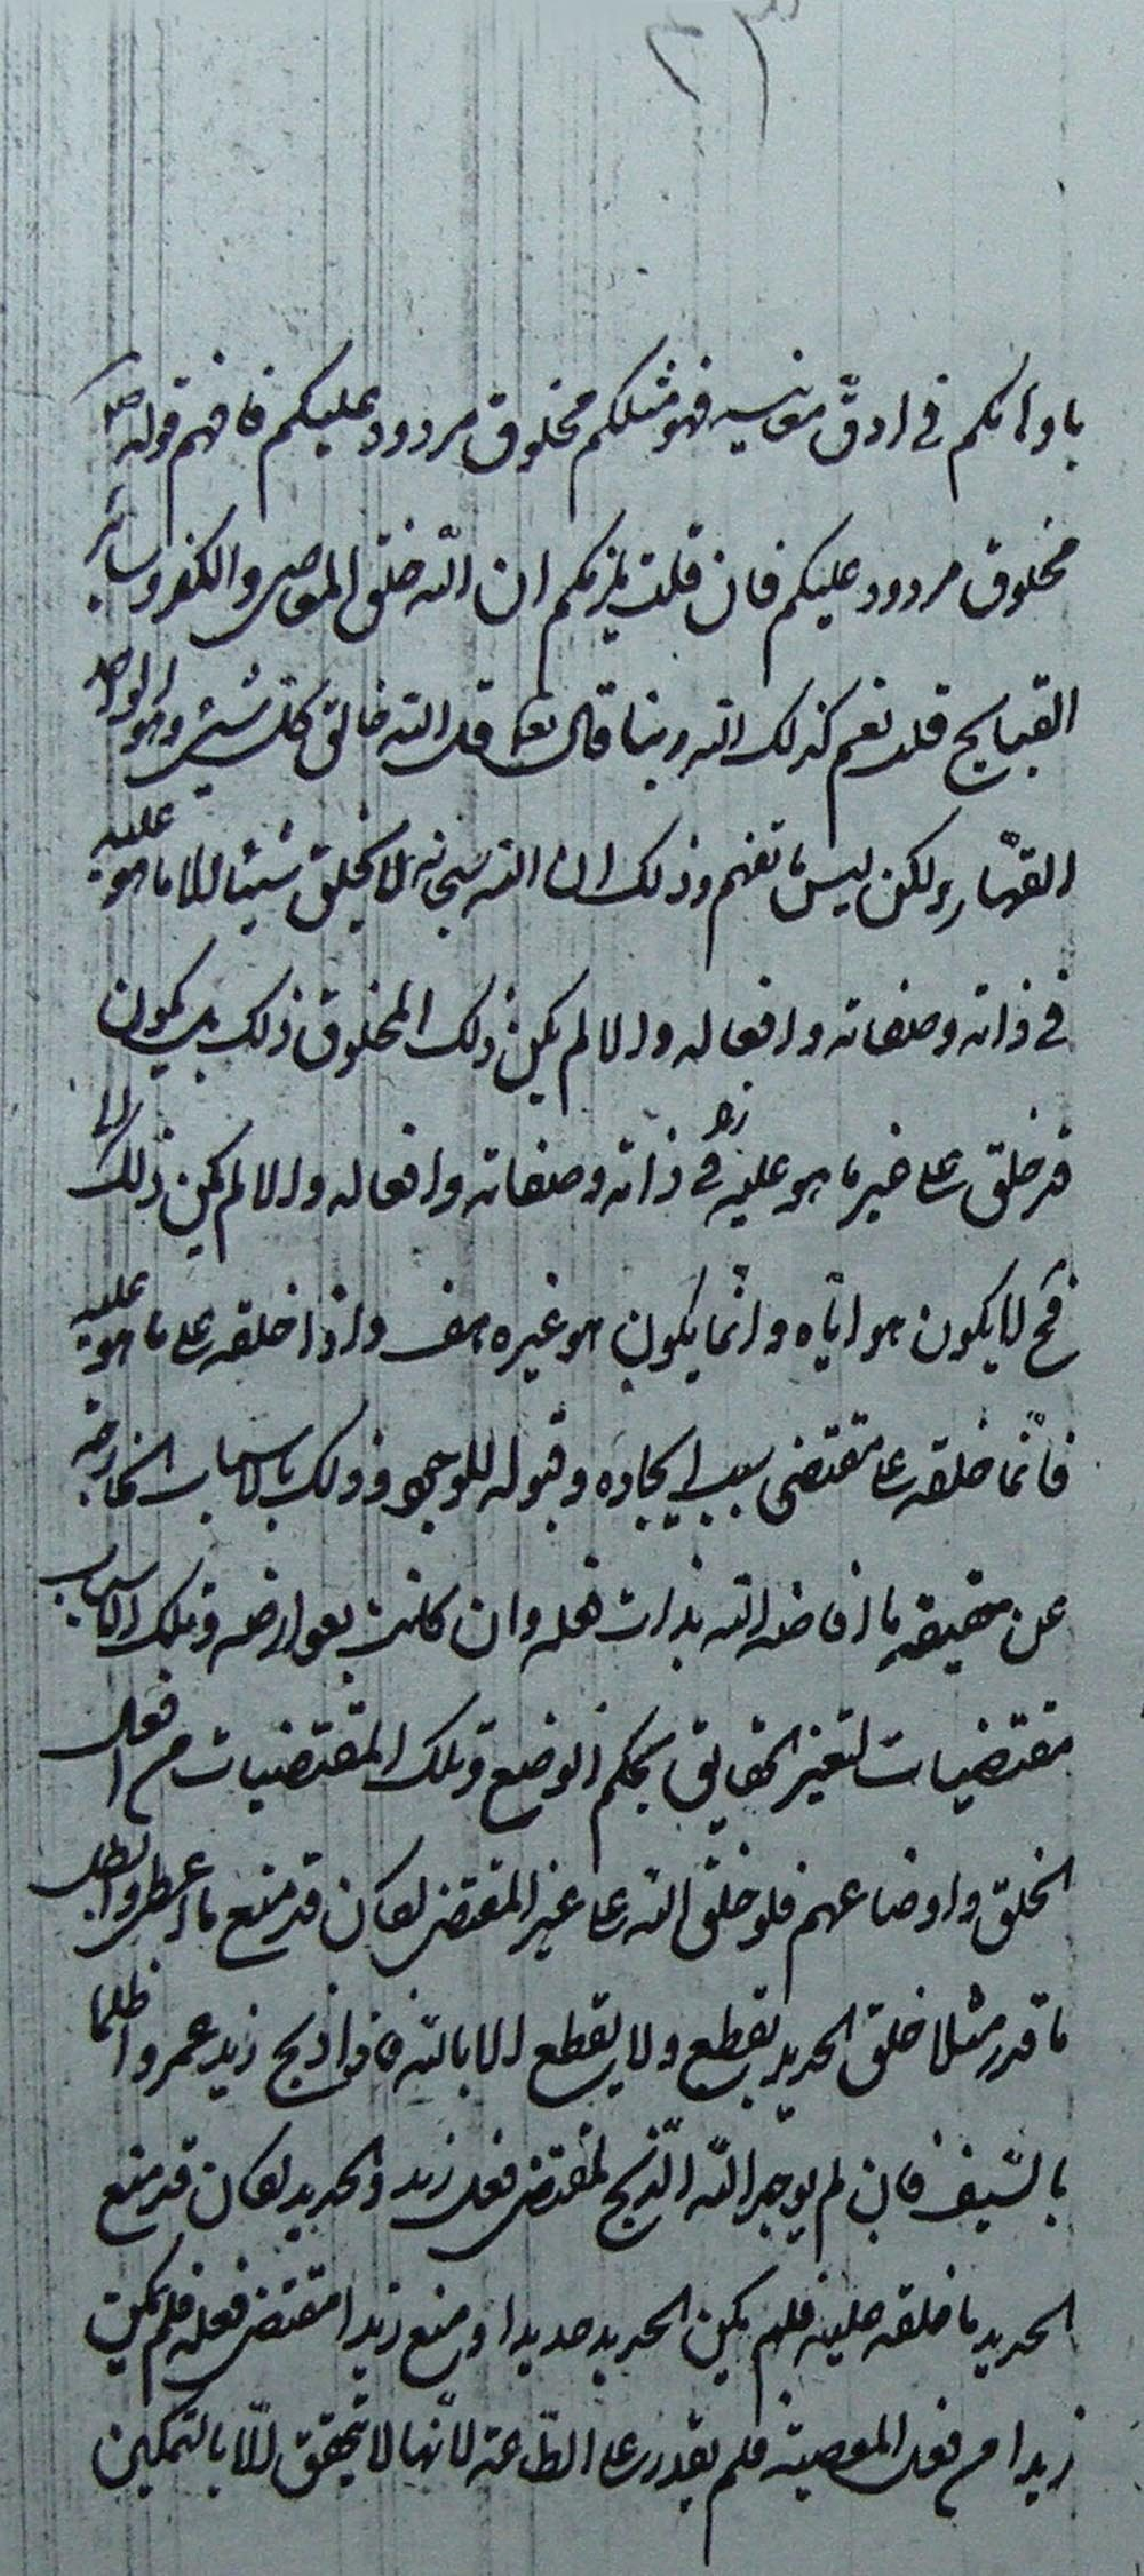 باوهامكم في ادق معانيه فهو مثلكم مخلوق مردود عليكم فافهم قوله ص
مخلوق مردود عليكم فان قلت يلزمكم ان الله خلق المعاصي والكفر وساير
القبايح قلت نعم كذلك الله ربنا قال تع قل الله خالق كل شيء وهو الواحد
القهار ولكن ليس ما تفهم وذلك ان الله سبحانه لا يخلق شيئا الا ما هو عليه
في ذاته وصفاته وافعاله والا لم يكن ذلك المخلوق ذلك بل يكون
قد خلق على غير ما هو عليه في ذاته وصفاته وافعاله والا لم يكن ذلك
فح لا يكون هو اياه وانما يكون هو غيره هف واذا خلقه على ما هو عليه
فانما خلقه على مقتضى سبب ايجاده وقبوله للوجود وذلك بالاسباب الخارجة
عن حقيقة ما افاضه الله بذات فعله وان كانت بعوارضه وتلك الاسباب
مقتضيات لتغير الحقايق بحكم الوضع وتلك المقتضيات من افعال
الخلق واوضاعهم فلو خلق الله على غير المقتضى لكان قد منع ما اعطى وابطل
ما قدر مثلا خلق الحديد يقطع ولا يقطع الا بالله فاذا ذبح زيد عمروا ظلما
بالسيف فان لم يوجد الله الذبح لمقتضى فعل زيد والحديد لكان قد منع
الحديد ما خلقه عليه فلم يكن الحديد حديدا ومنع زيدا مقتضى فعله فلم يمكن
زيدا من فعل المعصية فلم يقدر على الطاعة لانها لا تتحقق الا بالتمكين